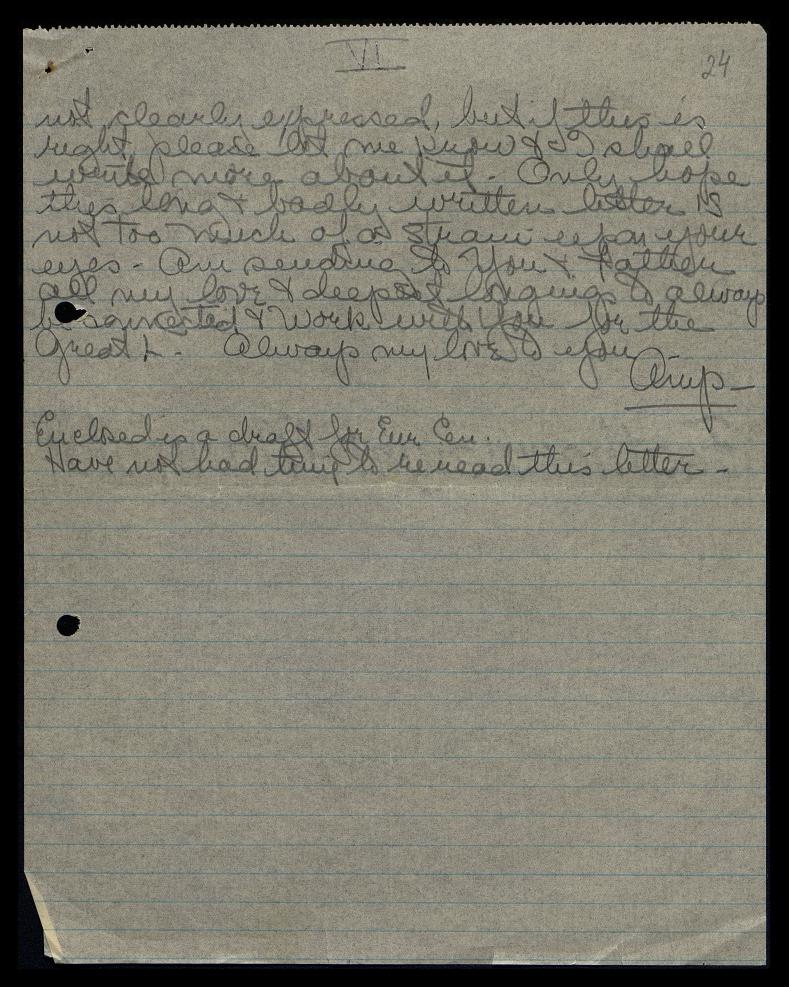 VI
24
not clearly expressed, but if this is
right, please let me know & I shall
write more about it. Only hope
this long & badly written letter is
not too much of a strain upon your
eyes - Am sending to You & Father
all my love & deepest longings to always
be connected & Work with You for the
Great L. Always my love to you
Amp-
Enclosed is a draft for Eur Cen.
Have not had time to reread this letter -